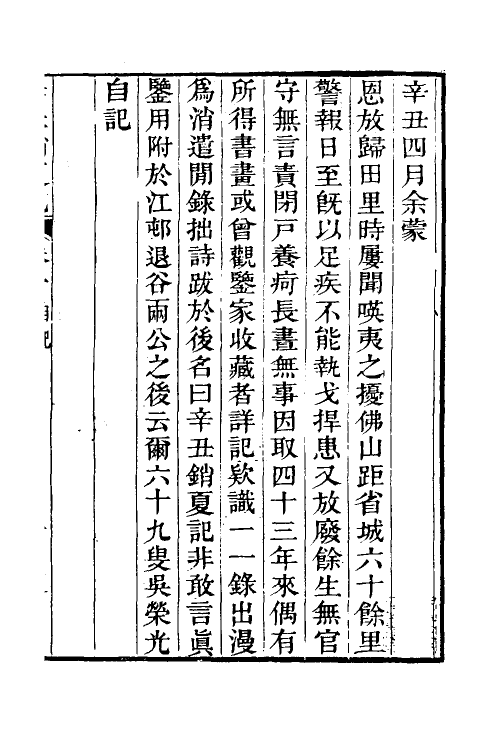 辛丑四月余蒙
恩放歸田里時屢聞𠸄夷之擾佛山距省城六十餘里
警報日至旣以足疾不能執戈捍患又放廢餘生無官
守無言責閉戸養疴長晝無事因取四十三年來偶有
所得書畫或曾觀鑒家收藏者詳記欵識一一錄出漫
爲消遣閒錄拙詩跋於後名曰辛丑銷夏記非敢言眞
鑒用附於江邨退谷兩公之後云爾六十九叟吳榮光
自記